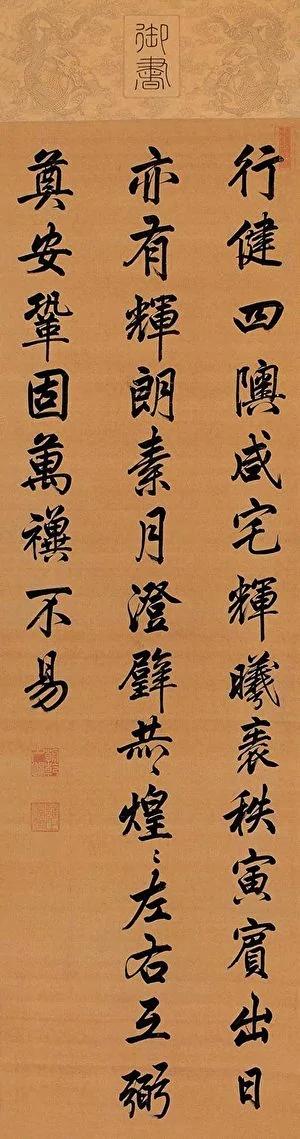 御書
行健四隩咸宅輝曦秩寅賓出日
亦有輝朗素月澄璧〻煌〻左右互弼
奠安鞏固萬禩不易